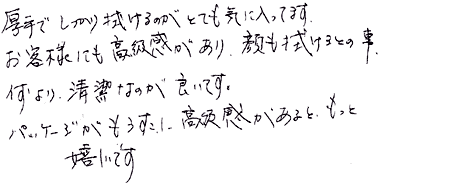 厚手でしっかり拭けるのがとても気に入ってます。
お客様にも高級感があり、顔も拭けるとの事、
何より、清潔なのが良いです。
パッケージがもう少し高級感があると、もっと
嬉しいです